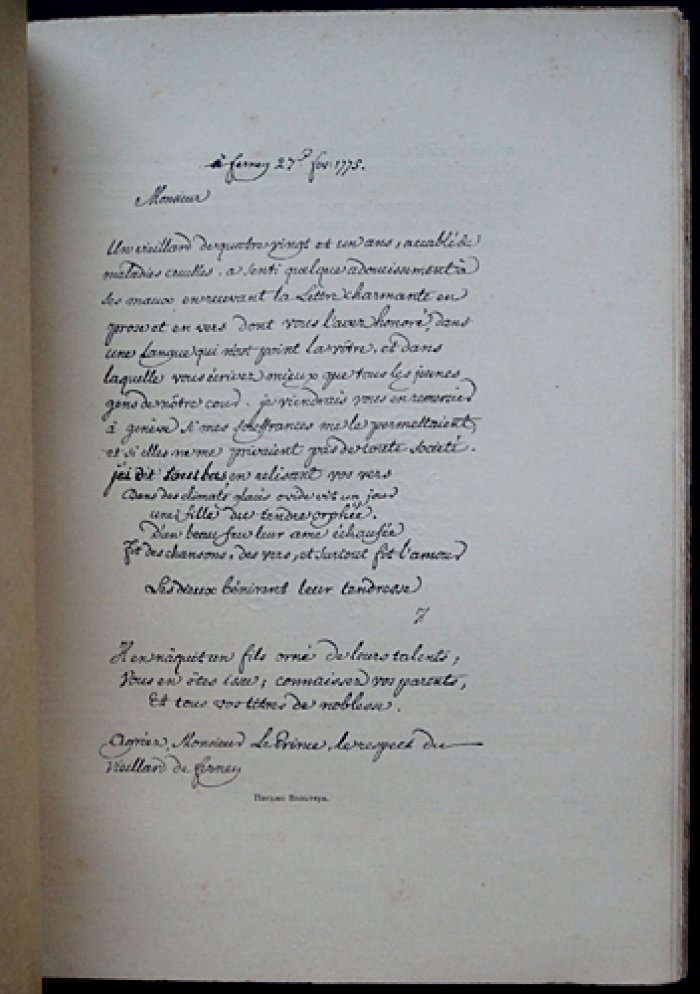 à ferney 27e fev 1775.
Monsieur
Un vieillard de quatre vingt et un ans, accablé de
maladies cruelles. a senti quelque adoucissement à
ses maux en recevant la Lettre charmante en
prose et en vers dont vous l'avez honoré, dans
une Langue qui n'est point la vôtre. et dans
laquelle vous écrivez mieux que tous les jeunes
gens de nôtre cour. je viendrais vous en remercier
à genève si mes souffrances me le permettaient,
et si elles ne me privaient pas de toute société.
j'ai dit tout bas en relisant vos vers
Dans des climats glacés ovide vit un jour
une fille du tendre orphée.
D'un beau feu leur ame échaufée
Fit des chansons, des vers, et surtout fit l'amour
Les dieux bénirent leur tendresse
Il en nâquit un fils orné de leurs talents;
Vous en êtes issu; connaissez vos parents,
Et tous vos titres de noblesse.
Agréez, Monsieur Le Prince, le respect du
vieillard de ferney
Письмо Вольтера.